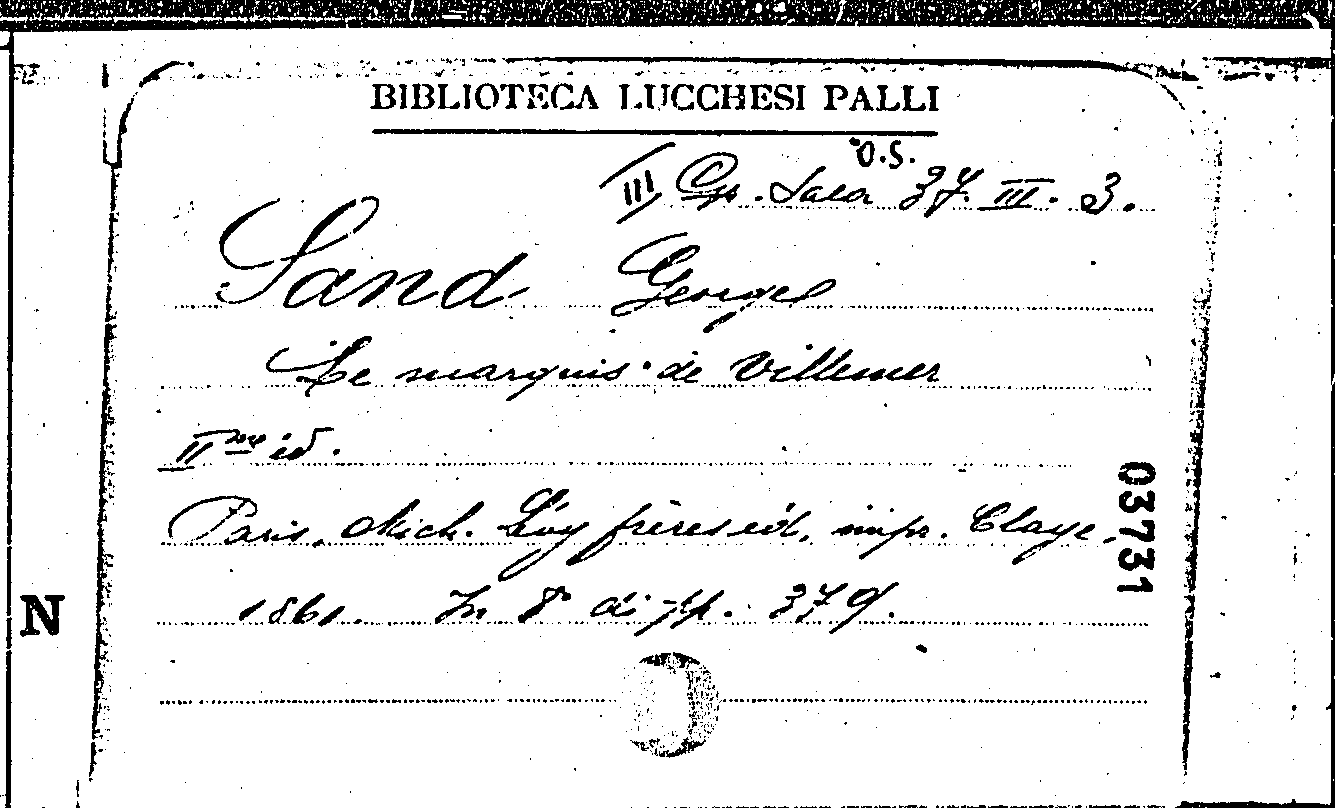 BIBLIOTECA LUCCHESI PALLI
O.S.
III Sala 37. III. 3.
Sand George
Le marquis de Villemer
II me éd.
Paris, Mich. Lévy frères éd., impr. Claye,
1861. In 8° di pp. 379.
03731
N